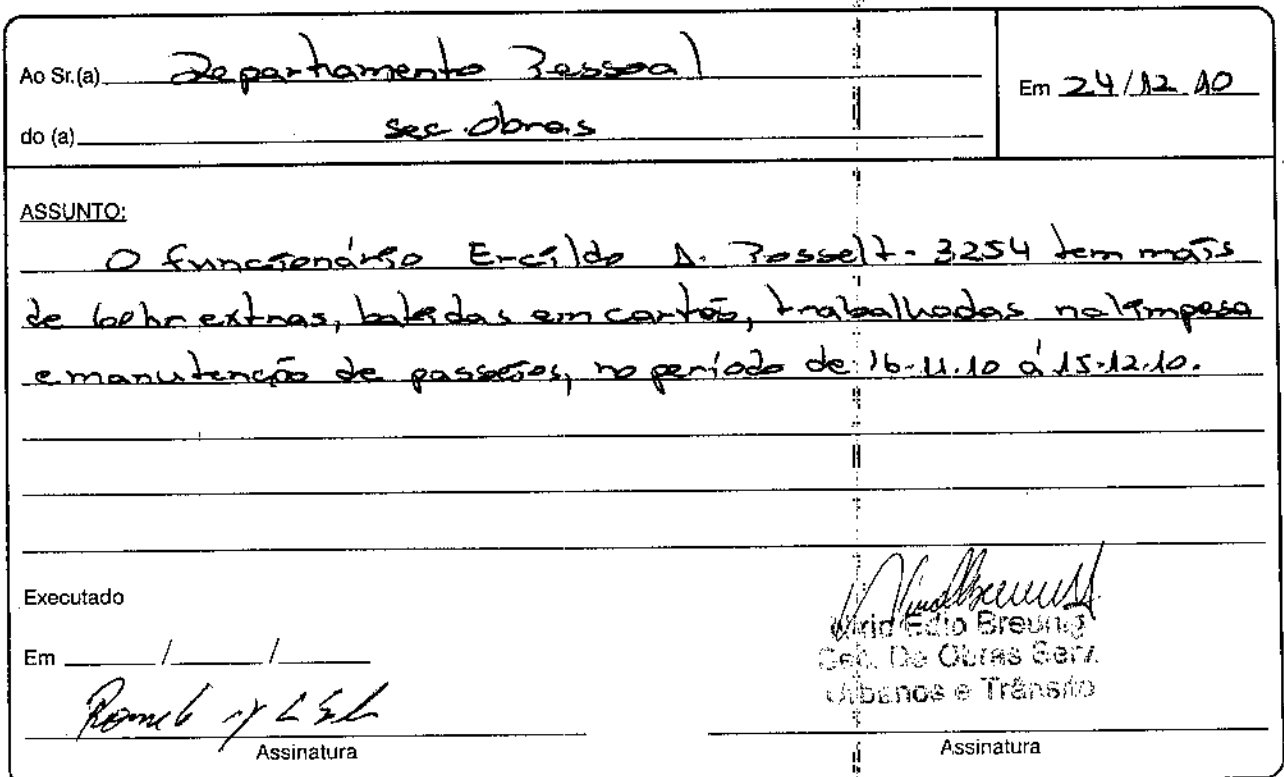 Ao Sr.(a) Departamento Pessoal
do (a) sec. Obras
Em 24/12 10
ASSUNTO:
O funcionário Ercildo A. Posselt - 3254 tem mais
de 60hr extras, batidas em cartão, trabalhadas na limpesa
e manutenção de passeios, no período de 16.11.10 á 15.12.10.
Executado
Em / /
Edio Breunig
Sec. De Obras Serv.
Urbanos e Trânsito
Assinatura
Assinatura